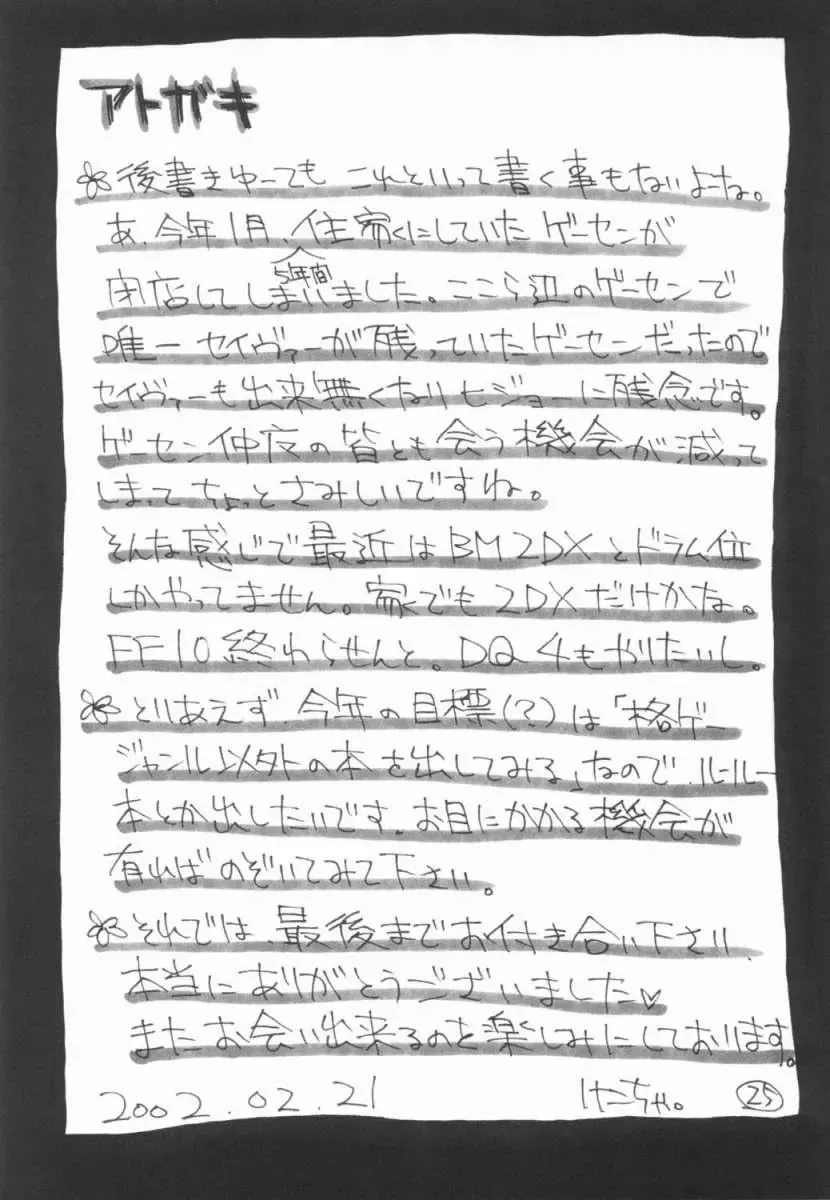 アトガキ
後書きゆーても これといって書く事もないよーね。
あ、今年1月、住家にしていたゲーセンが
5年間
閉店してしまいました。ここら辺のゲーセンで
唯一セイヴァーが残っていたゲーセンだったので
セイヴァーも出来無くなりヒジョーに残念です。
ゲーセン仲間の皆とも会う機会が減って
しまってちょっとさみしいですね。
そんな感じで最近はBM2DXとドラム位
しかやってません。家でも2DXだけかな。
FF10終わらせんと。DQ4もやりたいし。
とりあえず、今年の目標(?)は「格ゲー
ジャンル以外の本を出してみる」なので、ルーミルー
本とか出したいです。お目にかかる機会が
有ればのぞいてみて下さい。
それでは、最後までお付き合い下さい、
本当にありがとうございました♡
またお会い出来るのを楽しみにしております。
2002.02.21
けーちゃ。
25